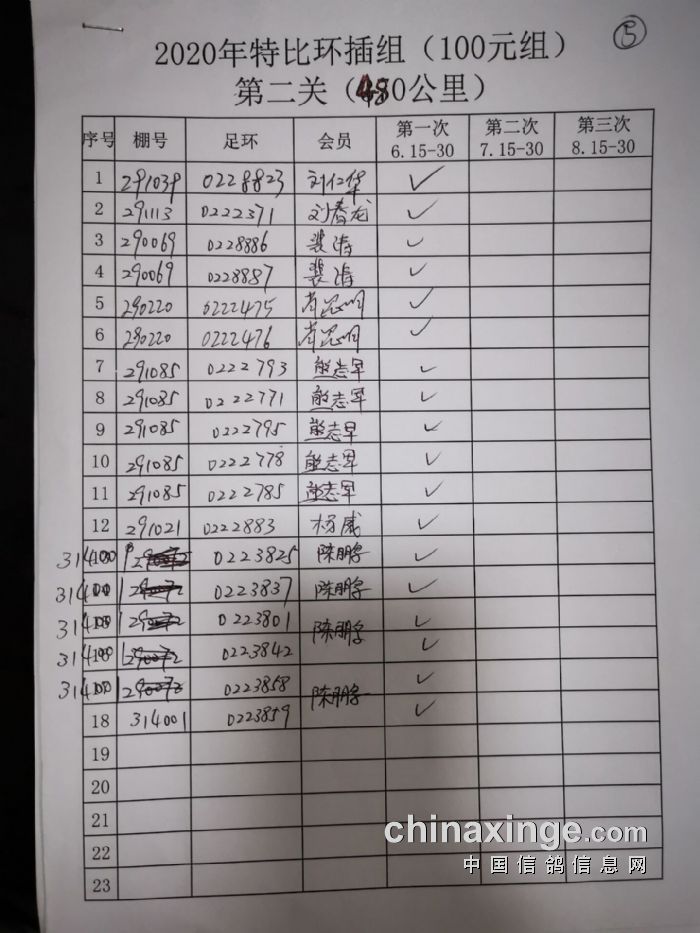 ⑤
2020年特比环插组（100元组）
第二关（480公里）
序号 棚号 足环 会员 第一次 6.15-30 第二次 7.15-30 第三次 8.15-30
1 291039 0228823 刘仁华 ✓
2 291113 0222371 刘春龙 ✓
3 290069 0228886 裴涛 ✓
4 290069 0228887 裴涛 ✓
5 290220 0222475 ✓
6 290220 0222476 ✓
7 291085 0222793 熊志军 ✓
8 291085 0222771 熊志军 ✓
9 291085 0222795 熊志军 ✓
10 291085 0222778 熊志军 ✓
11 291085 0222785 熊志军 ✓
12 291021 0222883 杨威 ✓
314001 0223825 陈鹏宇 ✓
314001 0223837 陈鹏宇 ✓
314001 0223801 陈鹏宇 ✓
314001 0223842 ✓
314001 0223858 陈鹏宇 ✓
18 314001 0223859 ✓
19
20
21
22
23
chinaxinge.com
中国信鸽信息网